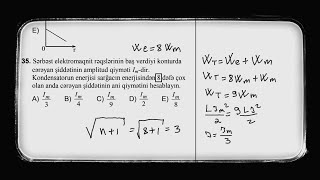 E)
W_e = 8W_m
35. Sərbəst elektromaqnit rəqslərinin baş verdiyi konturda
cərəyan şiddətinin amplitud qiyməti I_m-dir.
Kondensatorun enerjisi sarğacın enerjisindən 8 dəfə çox
olan anda cərəyan şiddətinin ani qiymətini hesablayın.
A) I_m/3 B) I_m/4 C) I_m/9 D) I_m/2 E) I_m/8
√n+1 = √8+1 = 3
W_T = W_e + W_m
W_T = 8W_m + W_m
W_T = 9W_m
LI_m²/2 = 9LI²/2
I = I_m/3